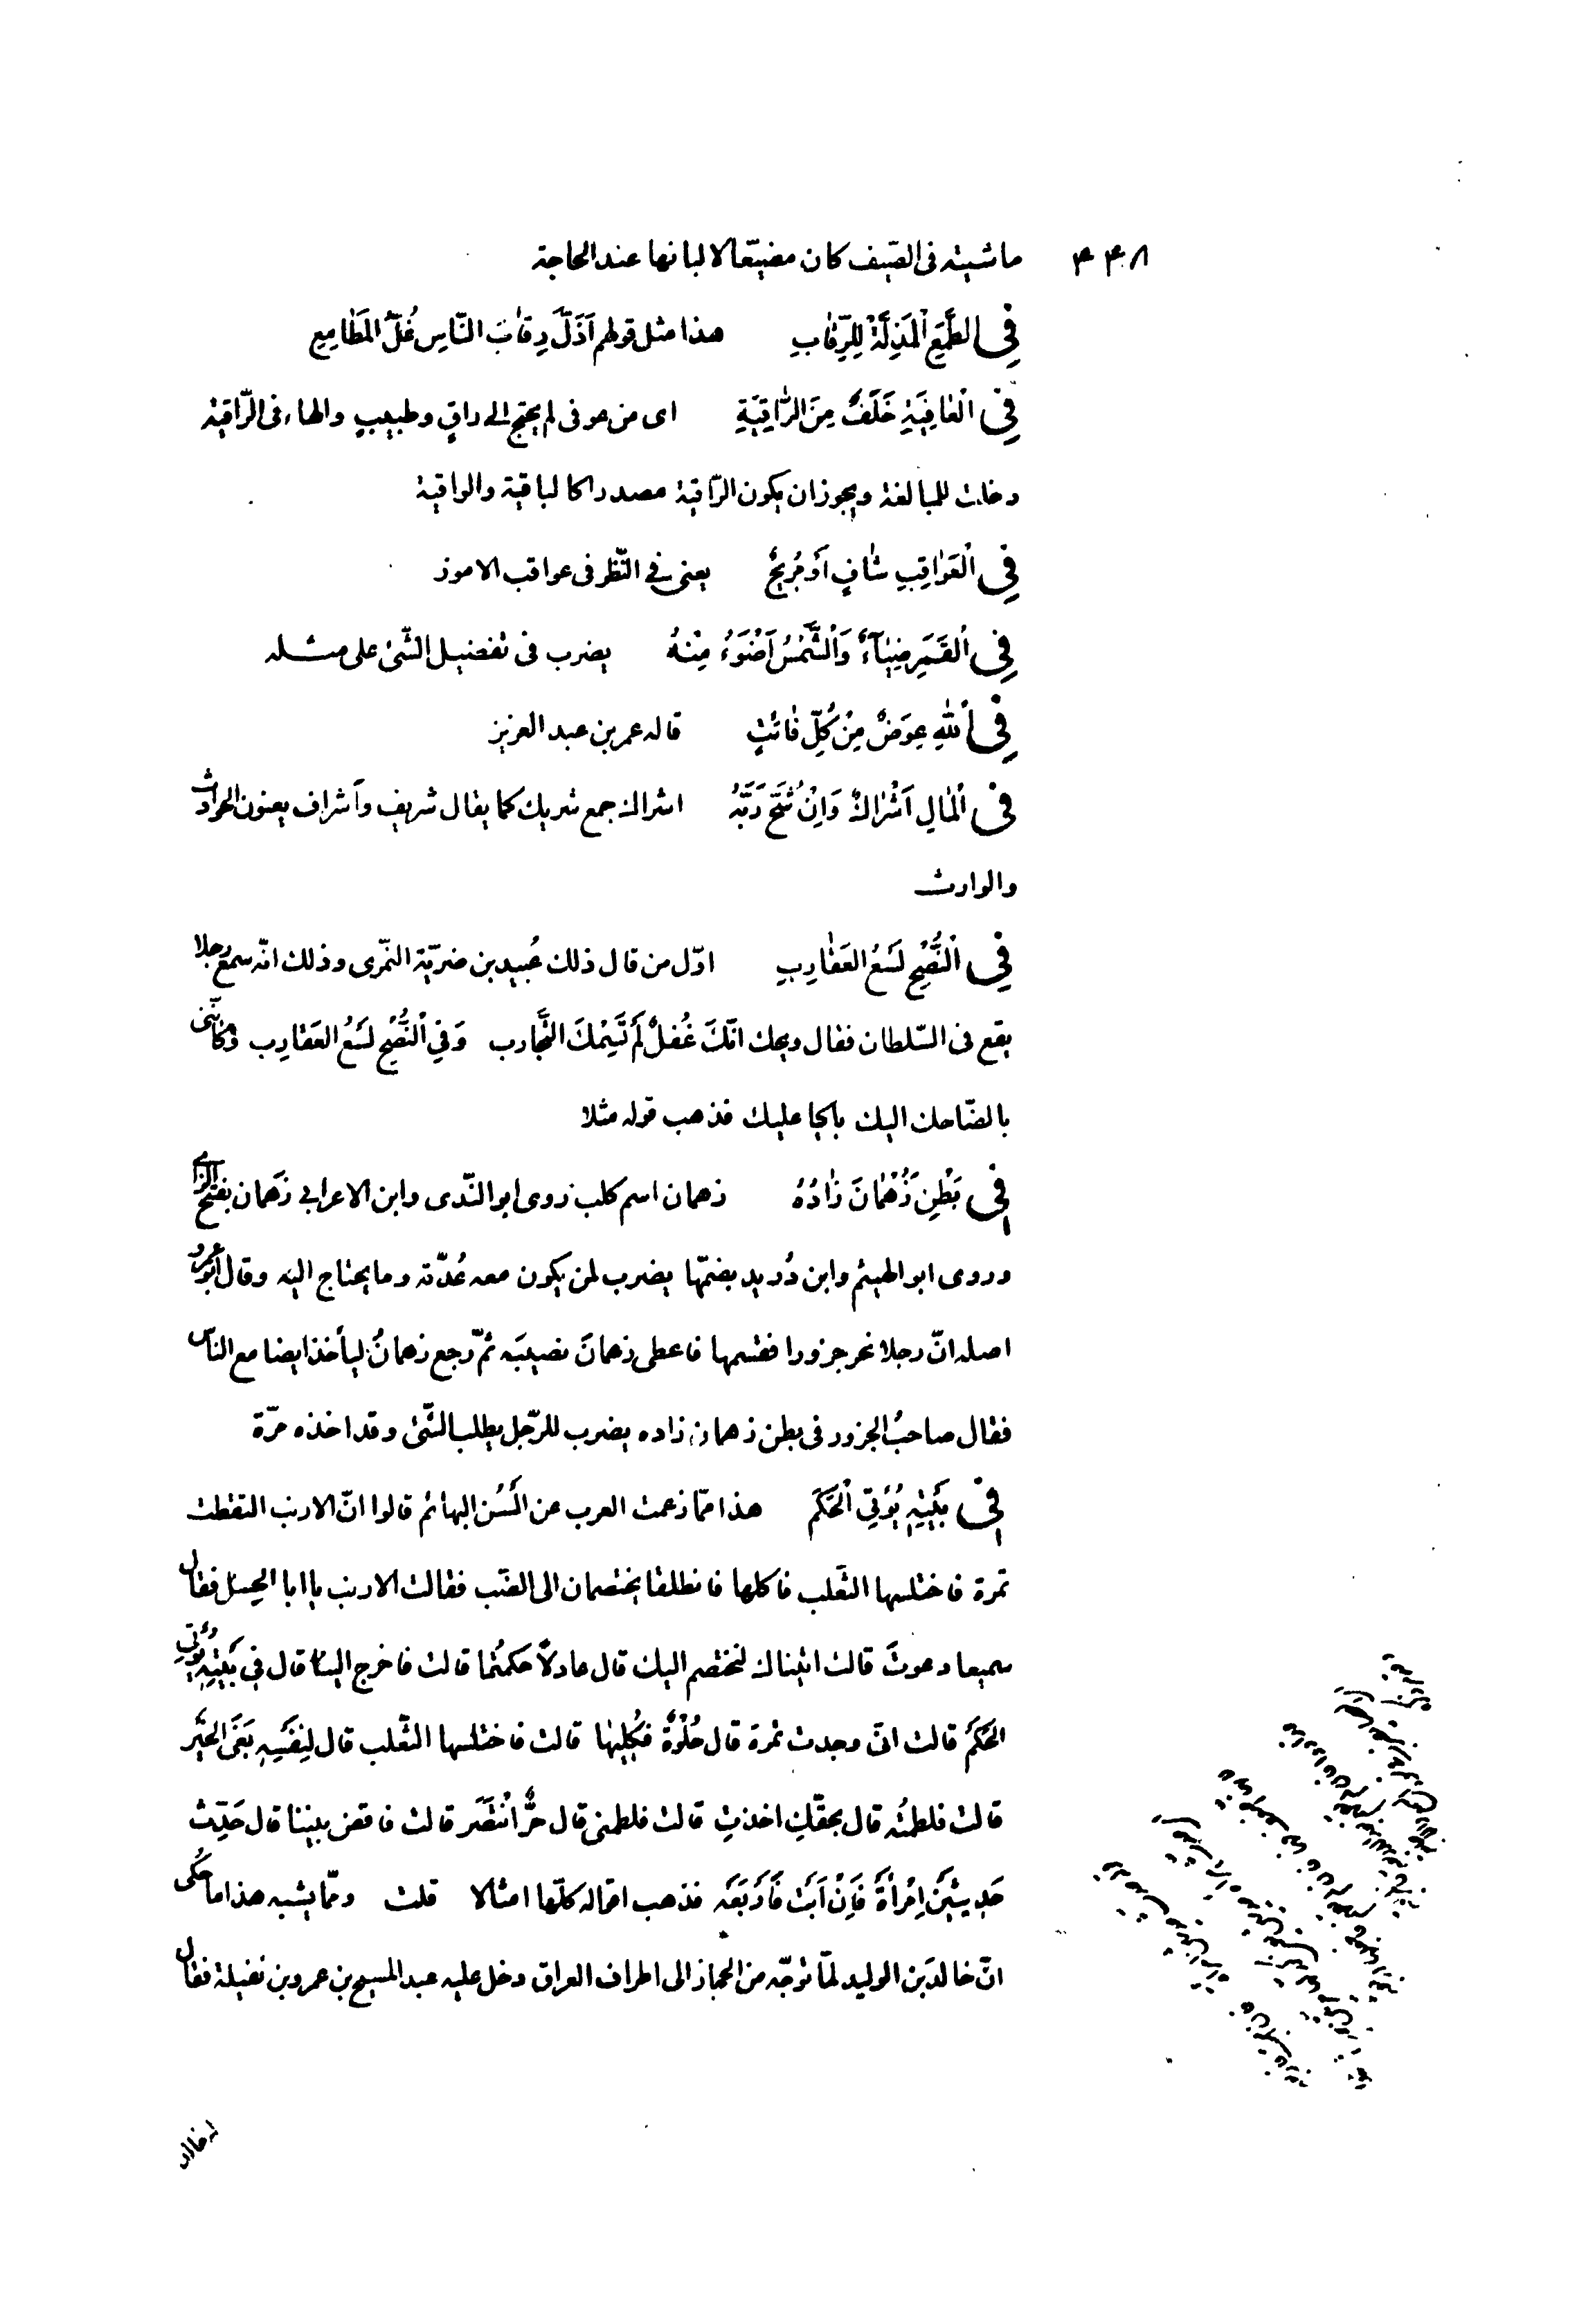 ٤٤٨
ماشيته فى الصّيف كان مضيّعا لالبانها عند الحاجة
فِى الطَّمَعِ الْمَذِلَّةُ لِلرِّقٰابِ هذا مثل قولهم اَذَلَّ رِقٰابَ النّاسِ غُلُّ المَطٰامِعِ
فِى الْعٰافِيَةِ خَلَفٌ مِنَ الرّٰاقِيَةِ اى من عوفى لم يحتج الى راقٍ وطبيبٍ والهاء فى الرّاقية
دخلت للمبالغة ويجوز ان يكون الرّاقية مصدرا كالباقية والواقية
فِى الْعَوٰاقِبِ شٰافٍ اَوْ مُرِيحٌ يعنى فى النّظر فى عواقب الامور
فِى الْقَمَرِ ضِيٰآءٌ وَالْشَّمْسُ اَضْوَءُ مِنْهُ يضرب فى تفضيل الشّئ على مثله
فِى اللّٰهِ عِوَضٌ مِنْ كُلِّ فٰائتٍ قاله عمر بن عبد العزيز
فِى الْمٰالِ اَشْرٰاكٌ وَاِنْ شَحَّ رَبُّهُ اشراك جمع شريك كما يقال شريف وأشراف يعنون الحوادث
والوارث
فِى الْنُّصْحِ لَسْعُ العَقٰارِبِ اوّل من قال ذلك عُبيد بن ضريّة النّمرى وذلك انّه سمع رجلا
يقع فى السّلطان فقال ويحك انّكَ غُفلٌ لَمْ تَسِمْكَ التَّجٰارب وَفِى الْنُّصْحِ لَسْعُ العَقارِب وكانّنى
بالضّاحك اليك باكيا عليك فذهب قوله مثلا
فِى بَطْنِ زُهْمٰانَ زٰادُهُ زهمان اسم كلب روى ابو النّدى وابن الاعرابى زَهمان بفتح الزاى
وروى ابو الهيثم وابن دُريد بضمّها يضرب لمن يكون معه عُدّته وما يحتاج اليه وقال ابو عمرو
اصله انّ رجلا نحر جزورا فقسمها فاعطى زهمانَ نصيبَه ثمّ رجع زهمانُ ليأخذ ايضا مع النّاس
فقال صاحبُ الجزور فى بطن زهمان زاده يضرب للرّجل يطلب الشّئ وقد اخذه مرّة
فِى بَيْتِهِ يُؤْتَى الْحَكَمُ هذا ممّا زعمت العرب عن السُن البهائم قالوا انّ الارنب التقطت
تمرة فاختلسها الثّعلب فاكلها فانطلقا يختصمان الى الضّب فقالت الارنب يا ابا الحِسل فقال
سميعا دعوتَ قالت اتيناك لنختصم اليك قال عادلًا حكمتُما قالت فاخرج الينا قال فِى بَيْتِهِ يُؤْتَى
الحَكَمُ قالت انّى وجدت تمرة قال حُلْوَةٌ فَكُلِيهٰا قالت فاختلسها الثّعلب قال لِنَفْسِهِ بَغَى الخَيْر
قالت فلطمتُه قال بحقّكِ اخذتِ قالت فلطمنى قال حُرٌّ انْتَصَر قالت فاقض بيننا قال حَدِّث
حَدِيثَيْنِ اِمْرأَةً فَاِنْ اَبَتْ فَاَرْبَعَه فذهب اقواله كلّها امثالا قلت وممّا يشبه هذا ما حُكى
انّ خالدَ بن الوليد لمّا توجّه من الحجاز الى اطراف العراق دخل عليه عبد المسيح بن عمرو بن نفيلة فقال
له خالد